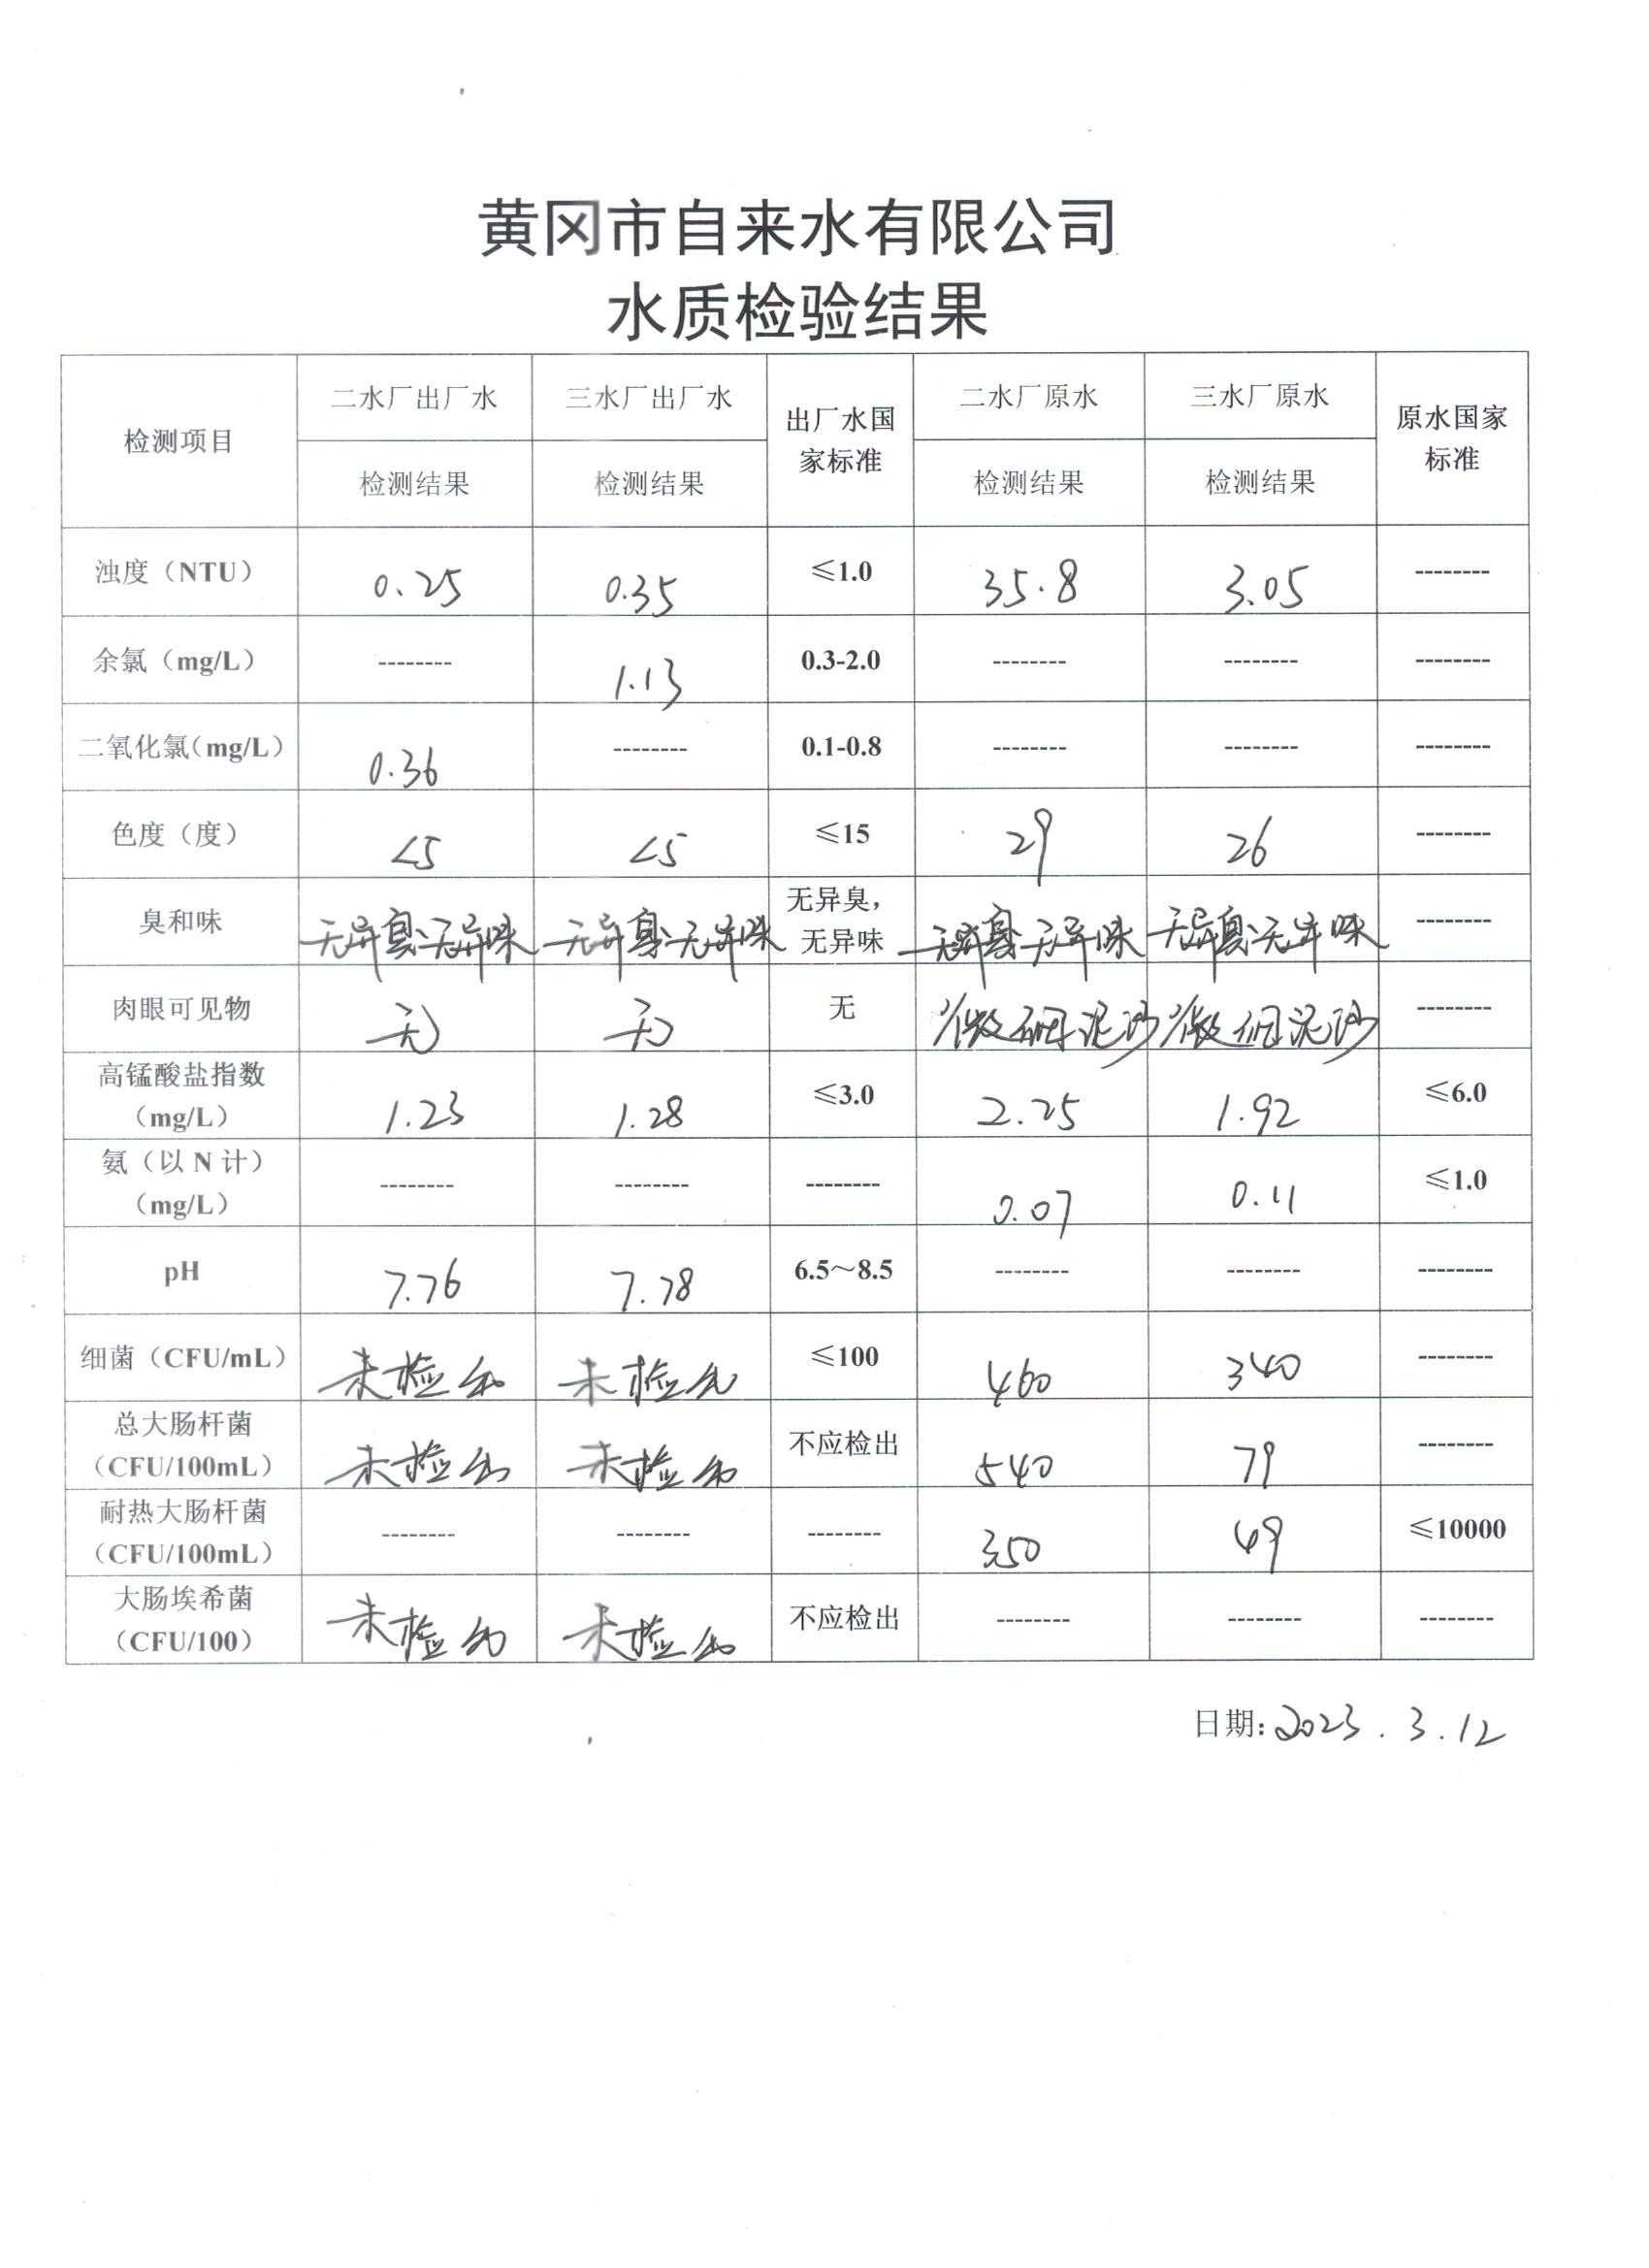 黄冈市自来水有限公司
水质检验结果
检测项目 二水厂出厂水 三水厂出厂水 出厂水国家标准 二水厂原水 三水厂原水 原水国家标准
检测结果 检测结果 检测结果 检测结果
浊度（NTU） 0.25 0.35 ≤1.0 35.8 3.05 --------
余氯（mg/L） -------- 1.13 0.3-2.0 -------- -------- --------
二氧化氯（mg/L） 0.36 -------- 0.1-0.8 -------- -------- --------
色度（度） <5 <5 ≤15 29 26 --------
臭和味 无异臭、无异味 无异臭、无异味 无异臭，无异味 无异臭、无异味 无异臭、无异味 --------
肉眼可见物 无 无 无 微细泥沙 微细泥沙 --------
高锰酸盐指数（mg/L） 1.23 1.28 ≤3.0 2.25 1.92 ≤6.0
氨（以 N 计）（mg/L） -------- -------- -------- 0.07 0.11 ≤1.0
pH 7.76 7.78 6.5～8.5 -------- -------- --------
细菌（CFU/mL） 未检出 未检出 ≤100 460 340 --------
总大肠杆菌（CFU/100mL） 未检出 未检出 不应检出 540 79 --------
耐热大肠杆菌（CFU/100mL） -------- -------- -------- 350 49 ≤10000
大肠埃希菌（CFU/100） 未检出 未检出 不应检出 -------- -------- --------
日期: 2023.3.12